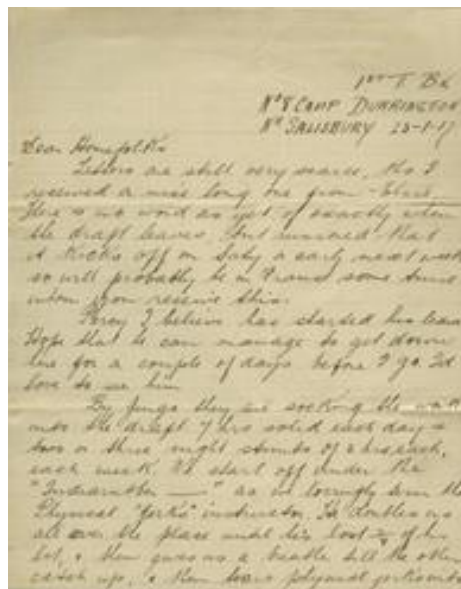 1st T. Bn
No 8 CAMP DURRINGTON
Nr SALISBURY 23-1-17
Dear Homefolks
Letters are still very scarce, tho I
received a nice long one from
There is no word as yet of exactly when
the draft leaves but rumored that
it kicks off on Saty or early next week
so will probably be in France some time
when you receive this.
Percy I believe has started his leave
Hope that he can manage to get down
here for a couple of days before I go. I'd
love to see him
By jingo they are socking the work
into the draft 7 hrs solid each day +
two or three night stunts of 2 hrs each,
each week. We start off under the
"Indiarubber ———" as we lovingly term the
Physical "jerks" instructor. He doubles us
all over the place until his lost of his
lot, & then gives us a breather till the others
catch up, & then physical jerks